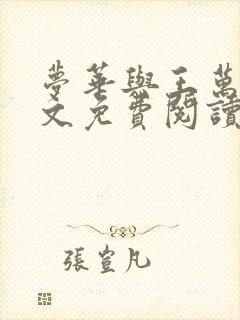 夢華與王萬
文免費閱讀
張萱凡